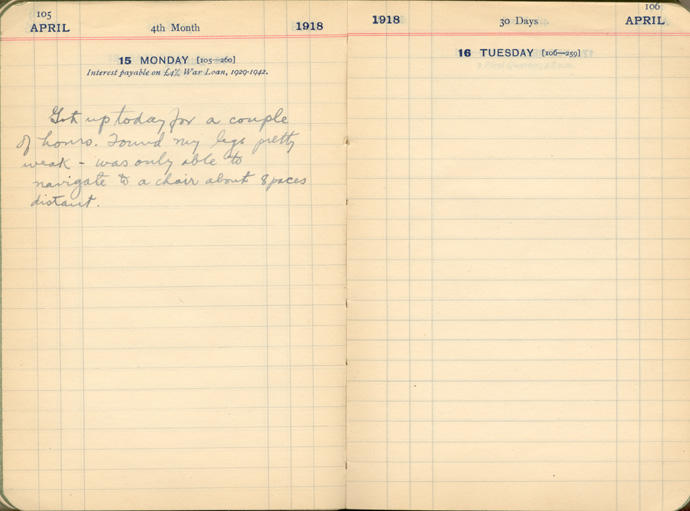 105
APRIL 4th Month 1918
15 MONDAY [105—260]
Interest payable on £4% War Loan, 1929-1942.
Got up today for a couple
of hours. Found my legs pretty
weak - was only able to
navigate to a chair about 8 paces
distant.
106
1918 30 Days APRIL
16 TUESDAY [106—259]